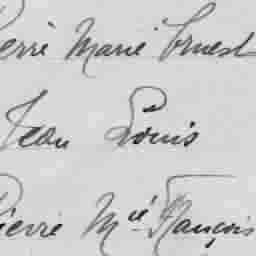 Pierre Marie Ernest
Jean Louis
Pierre Mie François